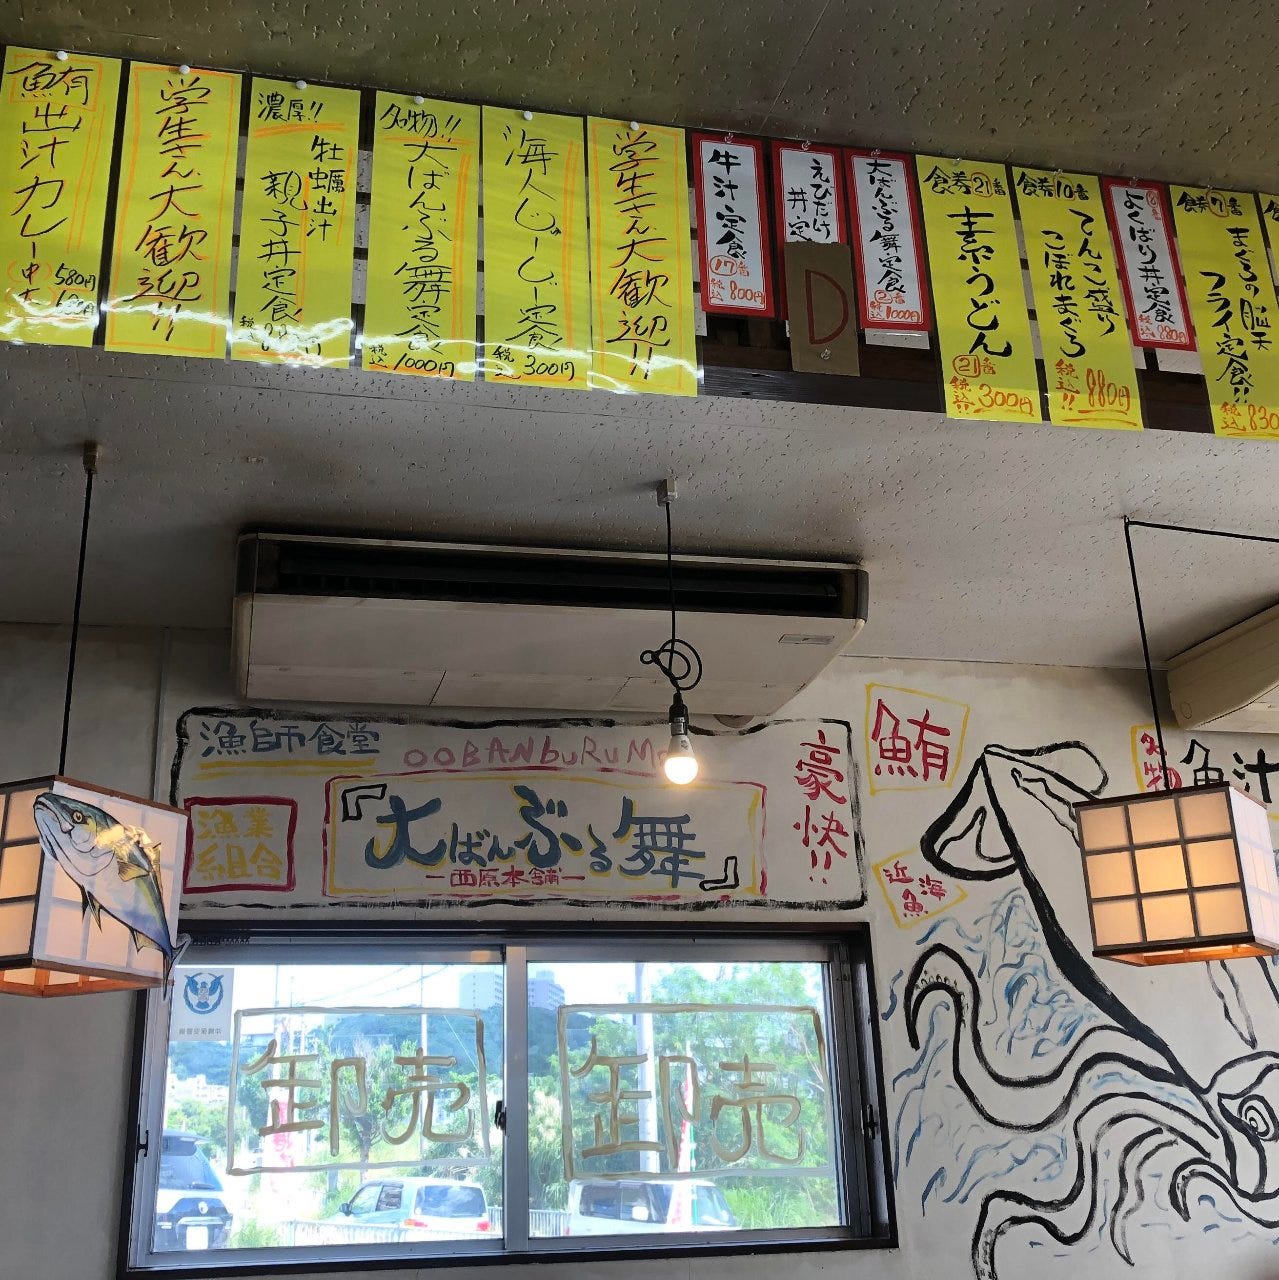 鮪出汁カレー
中 580円
大
学生さん大歓迎!!
濃厚!!
牡蠣出汁
親子丼定食
税込
名物!!
大ばんぶる舞定食
税込 1000円
海人じゅーしー定食
税込 300円
学生さん大歓迎!!
牛汁定食
17番
税込 800円
えびだけ
丼定
D
大ばんぶる舞定食
2番
税込 1000円
食券21番
素うどん
21番
税込!! 300円
食券10番
てんこ盛り
こぼれまぐろ
税込!! 880円
よくばり丼定食
税込 880円
食券7番
まぐろの脳天
フライ定食!!
税込 830
漁師食堂
OOBANBURUM
豪快!!
漁業
組合
『大ばんぶる舞』
ー西原本舗ー
鮪
近海
魚
名物
魚汁
卸売
卸売